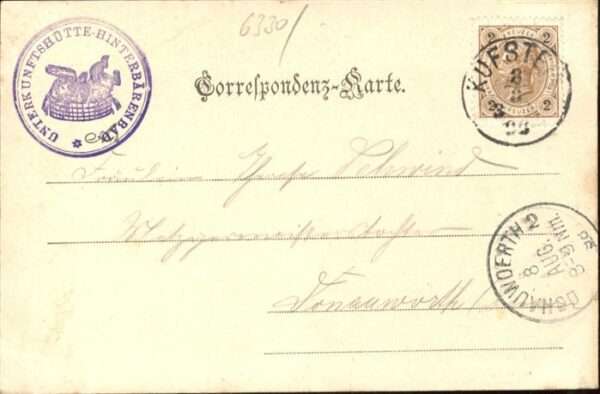 6330/
UNTERKUNFTSHÜTTE-HINTERBÄRENBAD
Correspondenz-Karte.
2 2
2 2
KUFSTE
8
98
Fräulein Schwind
Metzgermeisterstochter
Donauwörth
DONAUWOERTH 2
8
AUG.
NM.
98